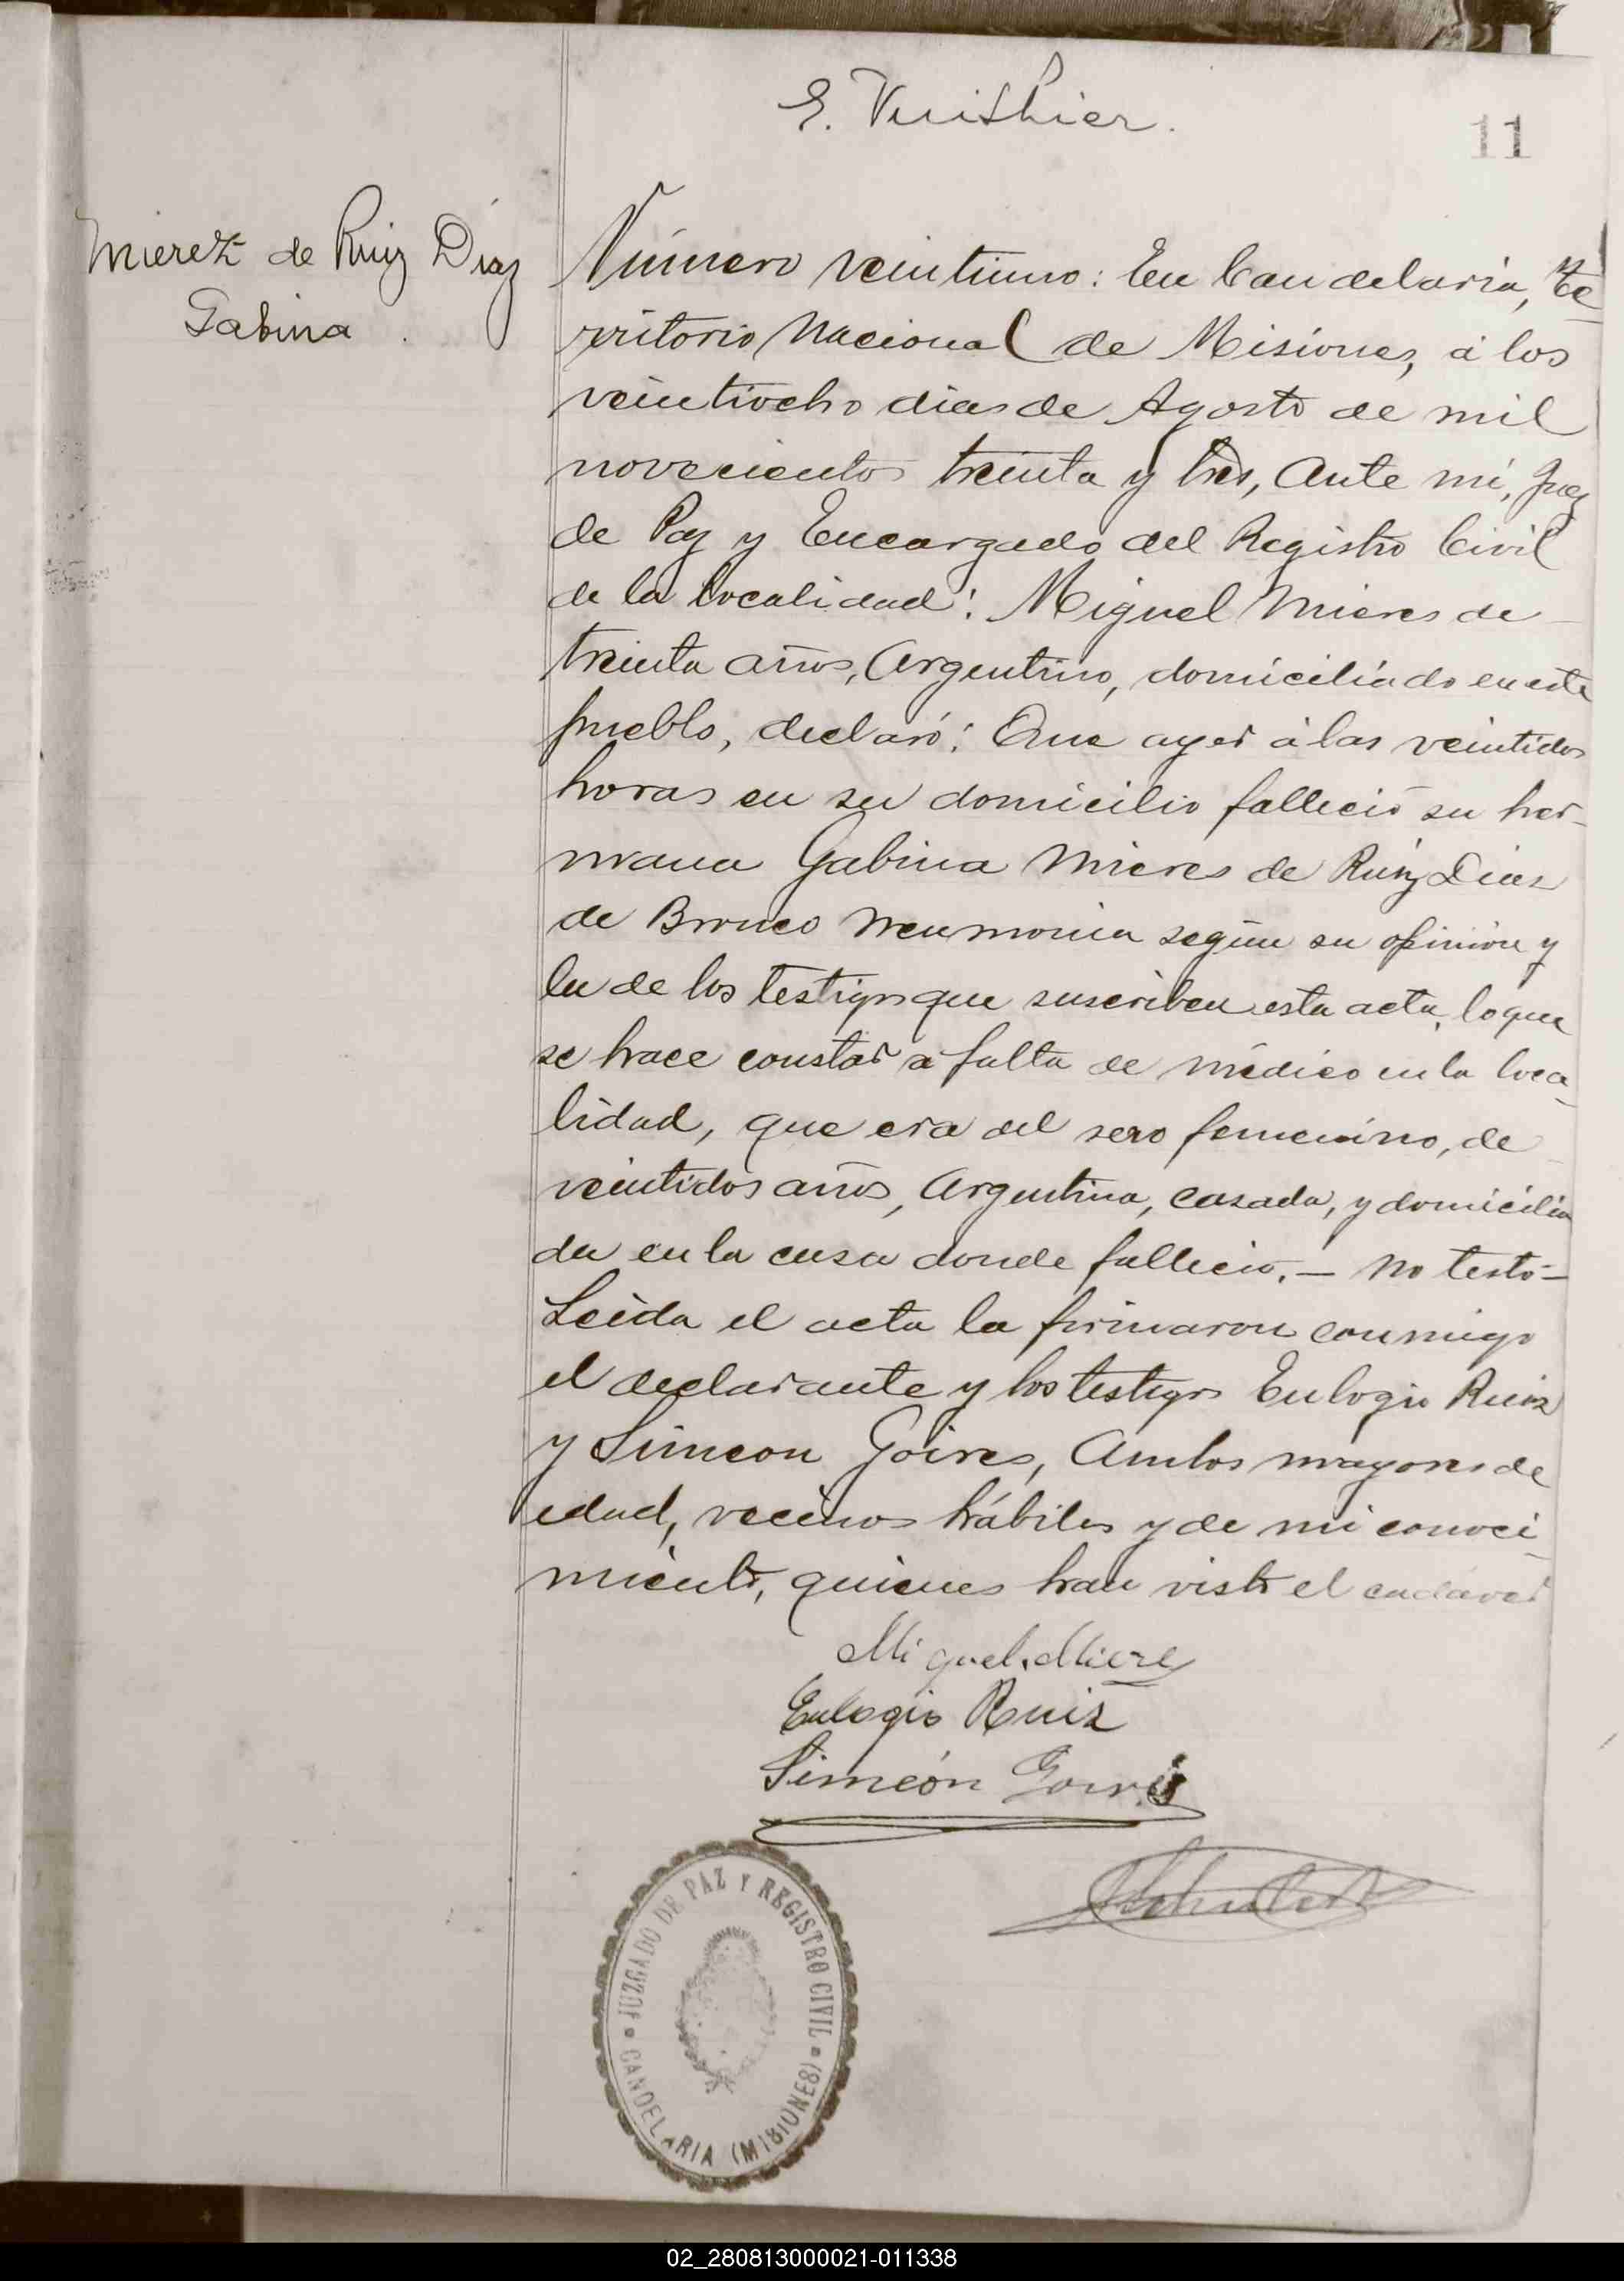 E. Vuithier.
11
Mierez de Ruiz Diaz
Gabina.
Número veintiuno: En Candelaria, Te-
rritorio Nacional de Misiones, á los
veintiocho dias de Agosto de mil
novecientos treinta y tres, Ante mi, Juez
de Paz y Encargado del Registro Civil
de la localidad: Miguel Mieres de
treinta años, Argentino, domiciliado en este
pueblo, declaró: Que ayer á las veintidos
horas en su domicilio falleció su her-
mana Gabina Mieres de Ruiz Diaz
de Bronco Neumonia según su opinión y
la de los testigos que suscriben esta acta, lo que
se hace constar a falta de médico en la loca-
lidad, que era del sexo femenino, de
veintidos años, Argentina, casada, y domicilia
da en la casa donde fallecio. — No testó —
Leida el acta la firmaron conmigo
el declarante y los testigos Eulogio Ruiz
y Simeon Goires, Ambos mayores de
edad, vecinos hábiles y de mi conoci-
miento, quienes han visto el cadáver
Miguel Miere
Eulogio Ruiz
Simeón
JUZGADO DE PAZ Y REGISTRO CIVIL
CANDELARIA (MISIONES)
02_280813000021-011338